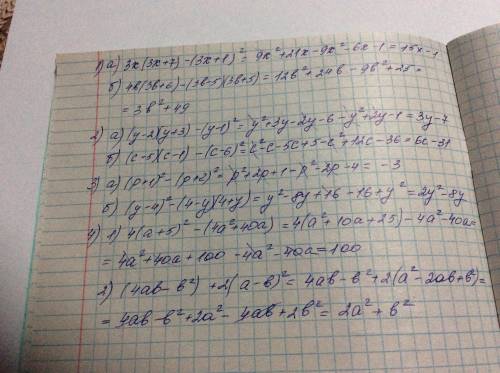 1) а) 3x(3x+7) - (3x+1)² = 9x² + 21x - 9x² - 6x - 1 = 15x - 1
б) 4в(3в+6) - (3в-5)(3в+5) = 12в² + 24в - 9в² + 25 =
= 3в² + 49
2) а) (y-2)(y+3) - (y-1)² = y² + 3y - 2y - 6 - y² + 2y - 1 = 3y - 7
б) (c-5)(c-1) - (c-6)² = c² - c - 5c + 5 - c² + 12c - 36 = 6c - 31
3) а) (p+1)² - (p+2)² = p² + 2p + 1 - p² - 2p - 4 = -3
б) (y-4)² - (4-y)(4+y) = y² - 8y + 16 - 16 + y² = 2y² - 8y
4) 1) 4(a+5)² - (4a²+40a) = 4(a² + 10a + 25) - 4a² - 40a =
= 4a² + 40a + 100 - 4a² - 40a = 100
2) (4ab - b²) + 2(a-b)² = 4ab - b² + 2(a² - 2ab + b²) =
= 4ab - b² + 2a² - 4ab + 2b² = 2a² + b²